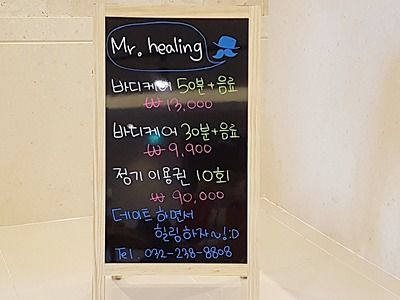 Mr. healing
바디케어 50분+음료
₩ 13,000
바디케어 30분+음료
₩ 9,900
정기 이용권 10회
₩ 90,000
데이트 하면서
힐링하자~!:D
Tel. 032-238-8808